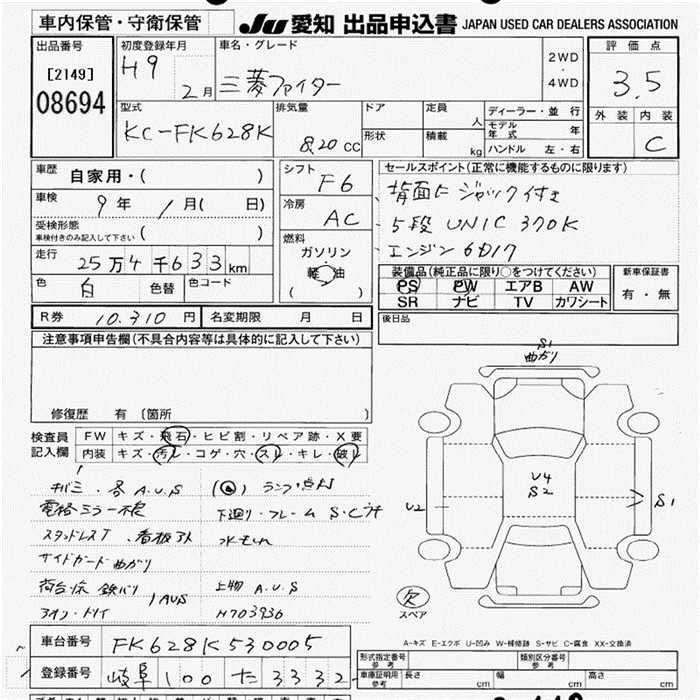 車内保管・守衛保管
JU 愛知 出品申込書 JAPAN USED CAR DEALERS ASSOCIATION
出品番号
[2149]
08694
初度登録年月
H9
2月
車名・グレード
三菱ファイター
2WD
・
4WD
評価点
3.5
外装 内装
C
型式
KC-FK628K
排気量
8,20 CC
ドア
形状
定員
人
積載
kg
ディーラー・並行
モデル年式 年
ハンドル 左・右
車歴
自家用・( )
車検
9年 1月( 日)
受検形態
車検付きのみ記入して下さい ( )
走行
25万4千633km
色
白
色替
色コード
シフト
F6
冷房
AC
燃料
ガソリン
軽 油
( )
セールスポイント(正常に機能するものに限ります)
背面にジャッグ付き
5段 UNIC 370K
エンジン 6D17
装備品(純正品に限り○をつけてください)
PS PW エアB AW
SR ナビ TV カワシート
新車保証書
有・無
R券 10,310 円
名変期限 月 日
後日品
注意事項申告欄(不具合内容等は具体的に記入して下さい)
修復歴 有 (箇所 )
検査員
記入欄
FW キズ・飛石・ヒビ割・リペア跡・X要
内装 キズ・汚レ・コゲ・穴・スレ・キレ・破レ
キバミ・各A.U.S
ランプ点灯
電格ミラー不良
下廻り・フレーム S・C
スタッドレスT 看板アト
水もれ
サイドガード曲がり
荷台床 鉄バリ
AUS
上物 A.U.S
H703936
S1
曲がり
U4
S2
U2
S1
欠
スペア
A-キズ E-エクボ U-凹み W-補修跡 S-サビ C-腐食 XX-交換済
車台番号 FK628K530005
登録番号 岐阜 100 た 3332
形式指定番号
参考
類別区分番号
参考
車庫証明用
参考
長さ cm
幅 cm
高さ cm